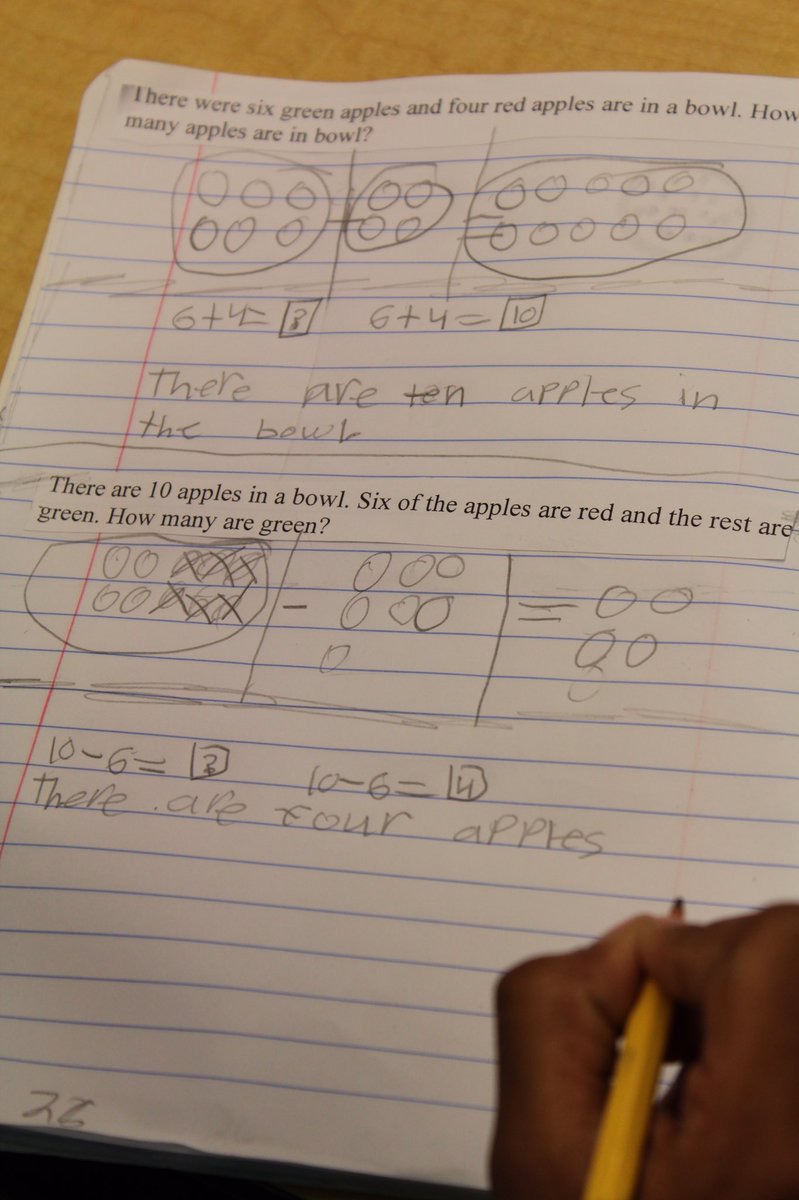 There were six green apples and four red apples are in a bowl. How
many apples are in bowl?
+ =
6+4=? 6+4=10
There are ten apples in
the bowl
There are 10 apples in a bowl. Six of the apples are red and the rest are
green. How many are green?
- =
10-6=? 10-6=4
There are four apples